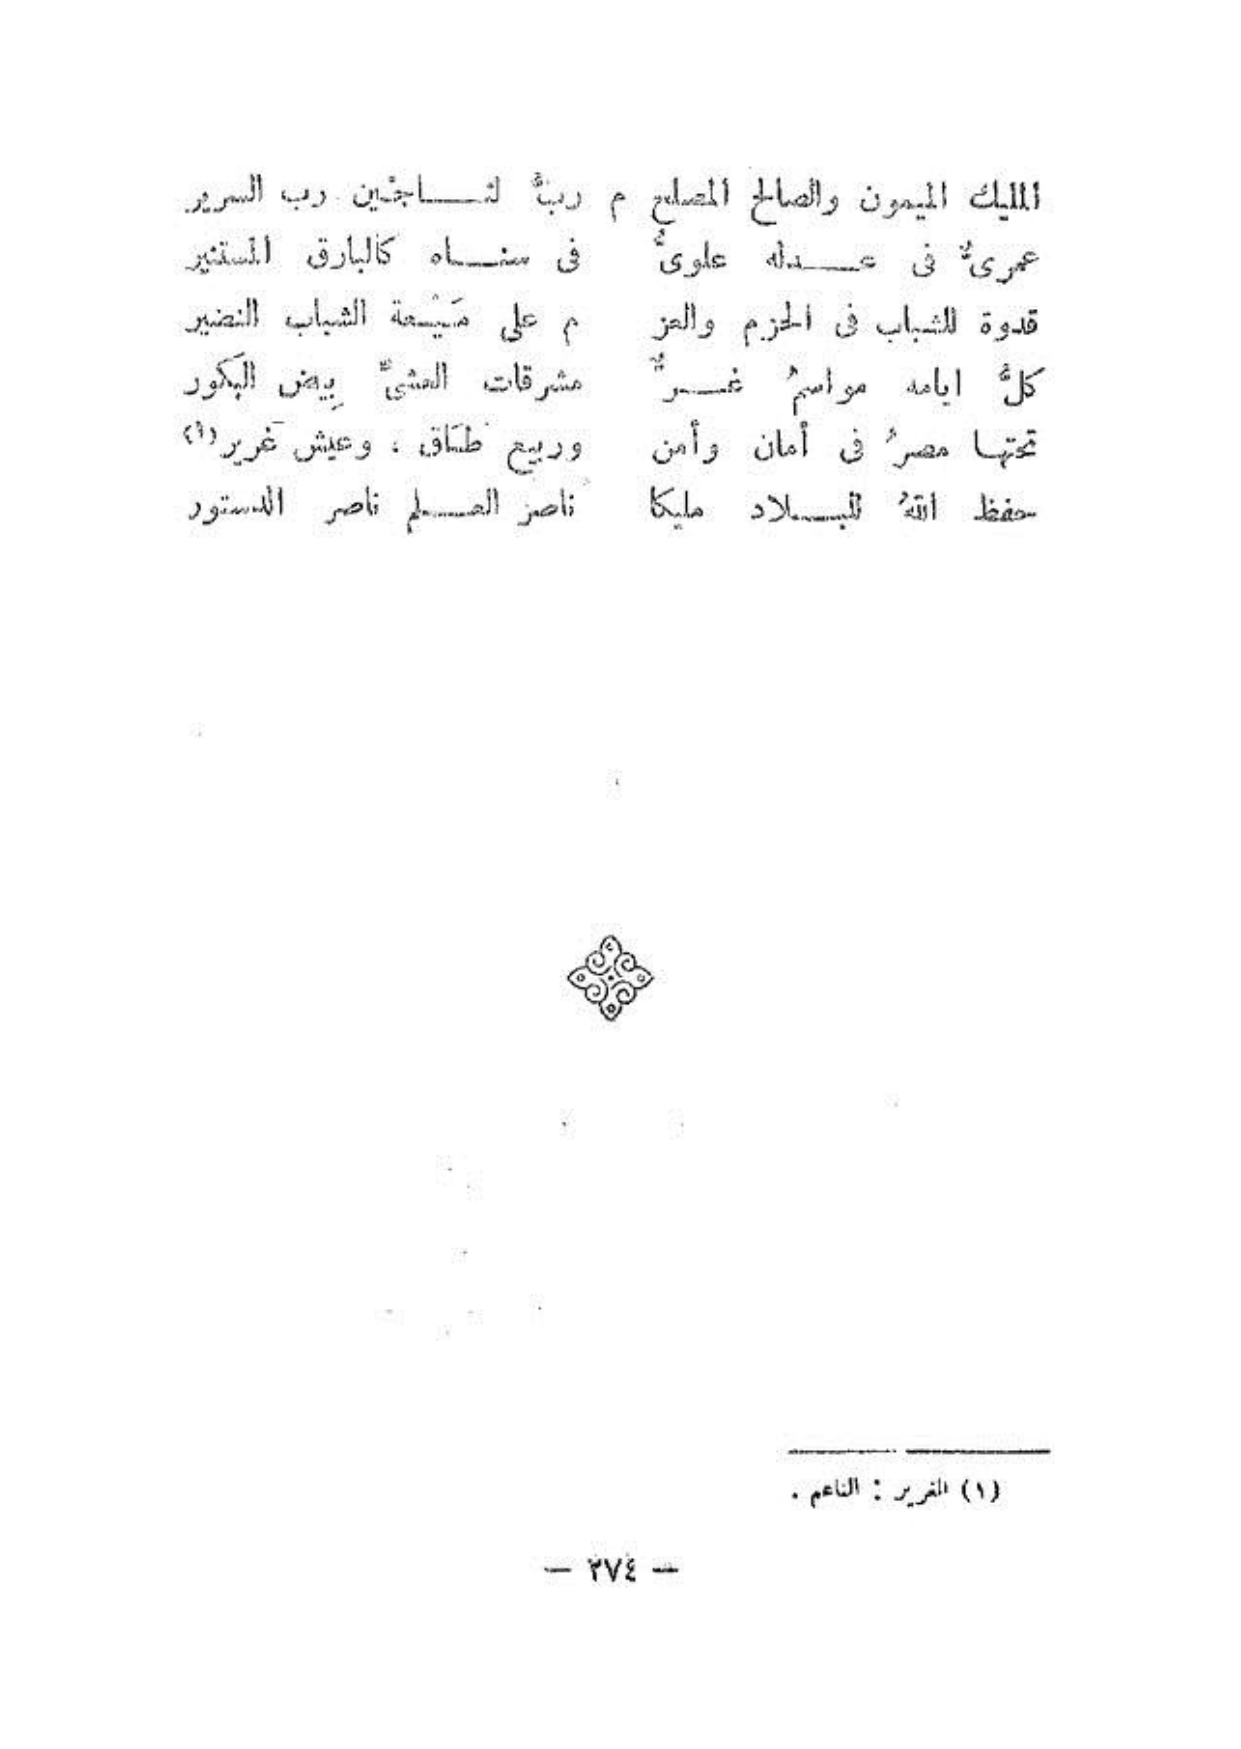 المليك الميمون والصالح المصلح م ربُّ لتاجَيْن رب السرير
عمرىٌّ فى عدله علوىٌّ فى سناه كالبارق المستنير
قدوة للشباب فى الحزم والعز م على مَيْعة الشباب النضير
كلُّ ايامه مواسمُ غرٌّ مشرقات العشىِّ بِيض البَكور
تحتها مصرُ فى أمان وأمن وربيع طَلق ، وعيش غَرير (١)
حفظ اللهُ للبلاد مليكا ناصرَ العلم ناصر الدستور
(١) الغرير : الناعم .
— ٢٧٤ —